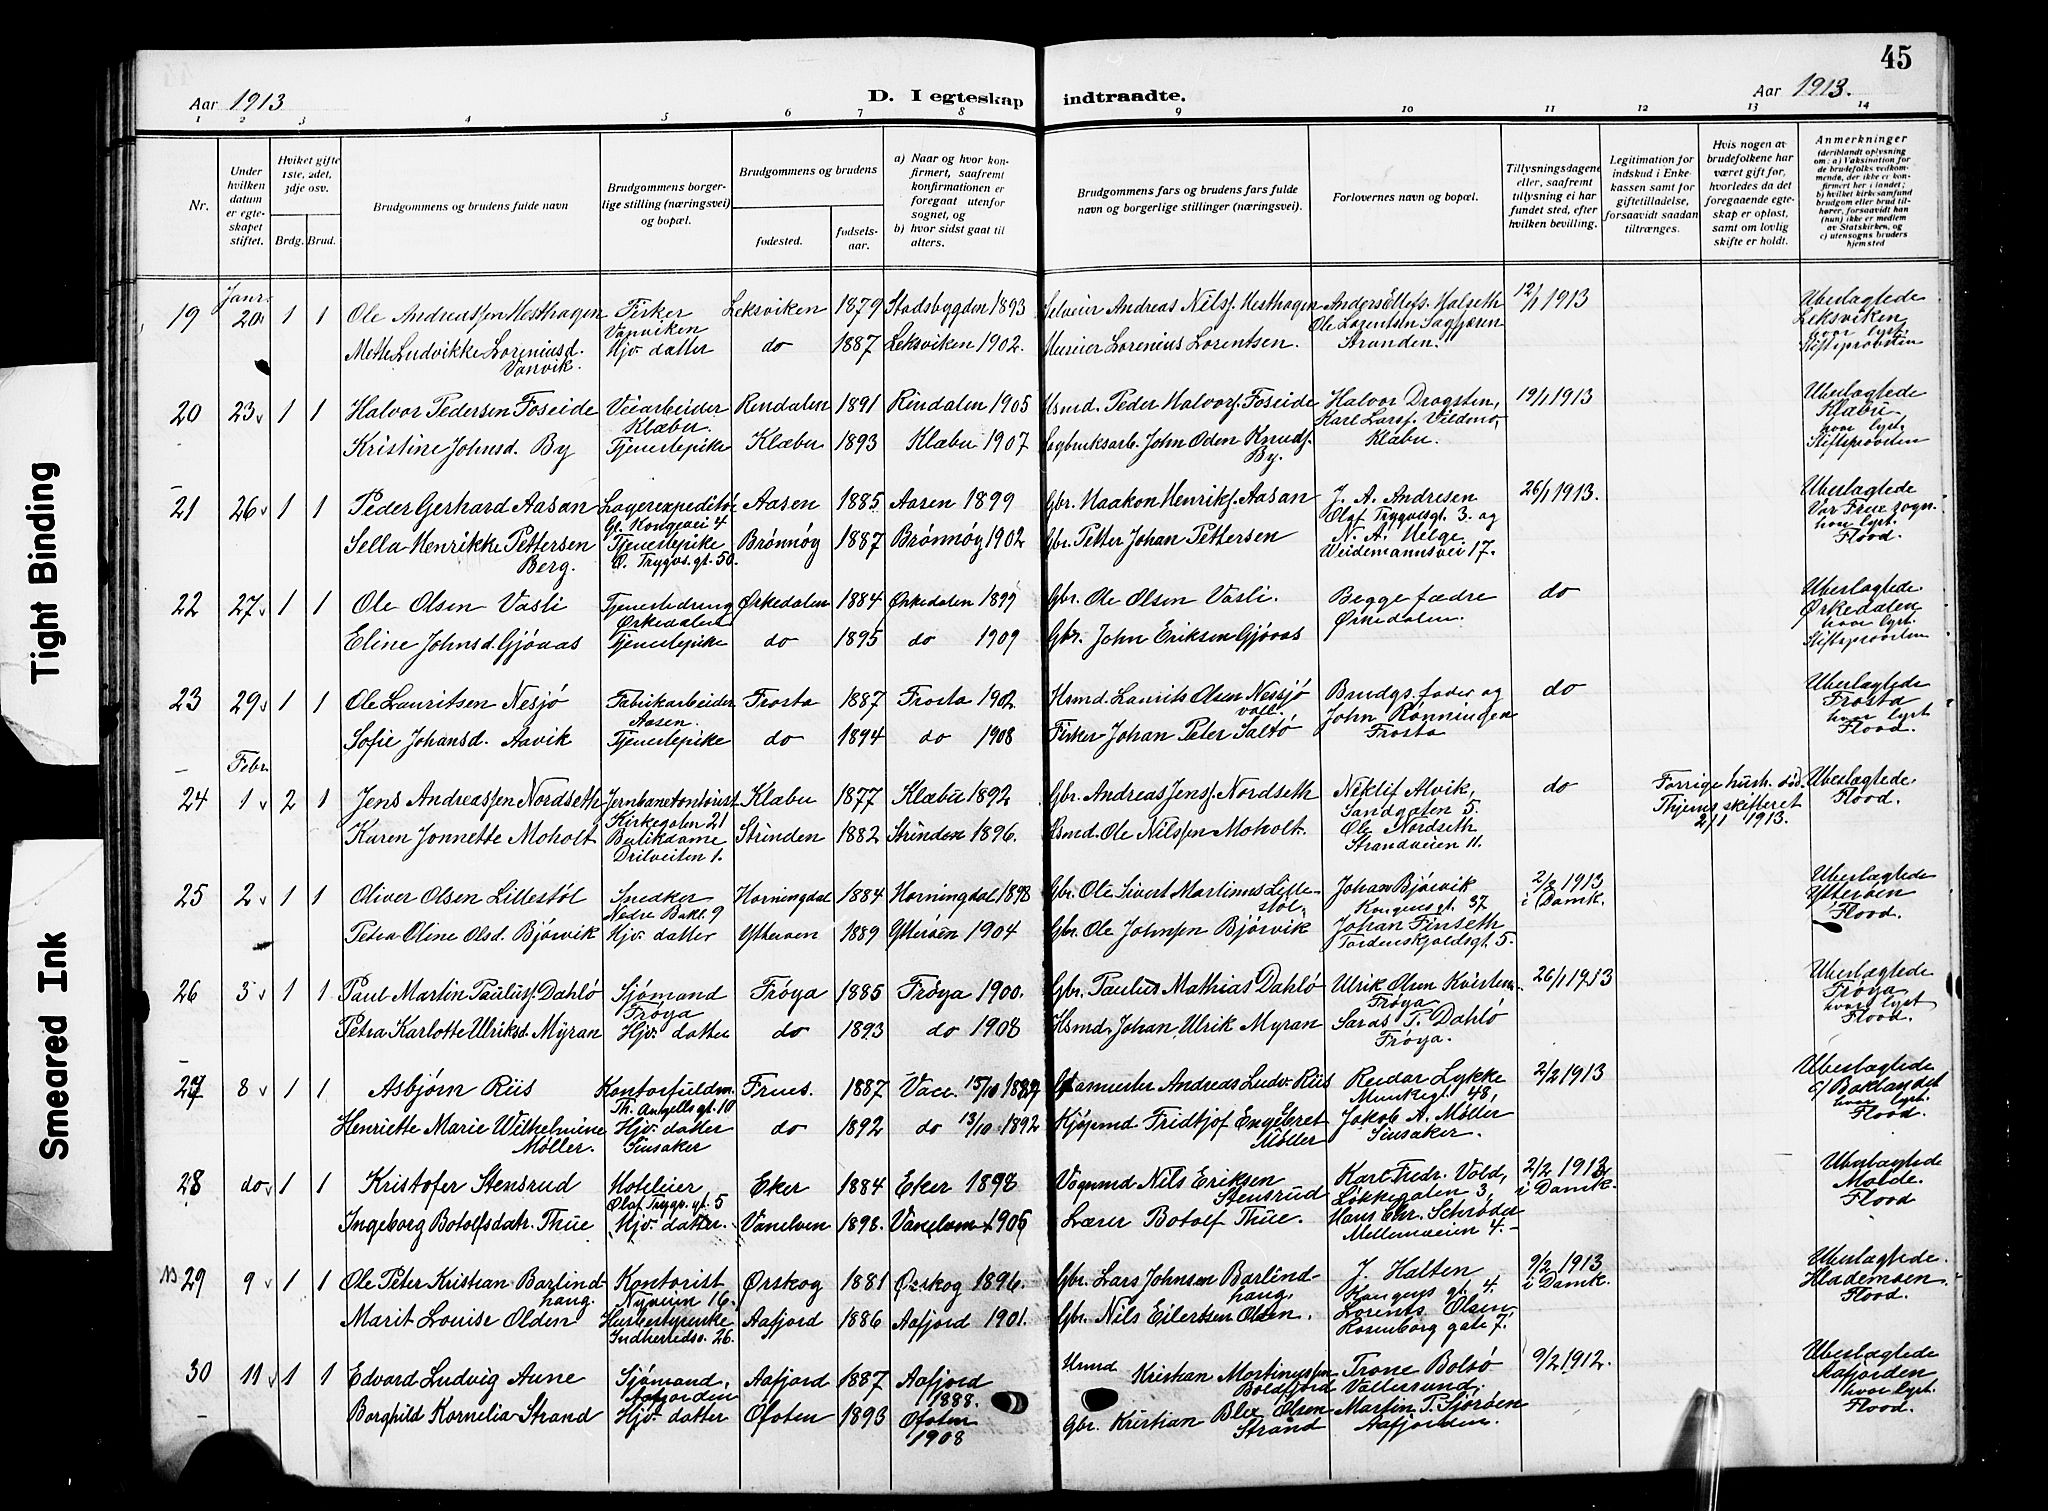 Tight Binding
Smeared Ink
45
Aar 1913
D. I egteskap indtraadte.
Aar 1913.
1 2 3 4 5 6 7 8 9 10 11 12 13 14
Nr.
Under hvilken datum er egteskapet stiftet.
Hviket gifte 1ste, 2det, 3dje osv.
Brdg. Brud.
Brudgommens og brudens fulde navn
Brudgommens borgerlige stilling (næringsvei) og bopæl.
Brudgommens og brudens
fødested.
fødselsaar.
a) Naar og hvor konfirmert, saafremt konfirmationen er foregaat utenfor sognet, og
b) hvor sidst gaat til alters.
Brudgommens fars og brudens fars fulde navn og borgerlige stillinger (næringsvei).
Forlovernes navn og bopæl.
Tillysningsdagene eller, saafremt tillysning ei har fundet sted, efter hvilken bevilling.
Legitimation for indskud i Enkekassen samt for giftetilladelse, forsaavidt saadan tiltrænges.
Hvis nogen av brudefolkene har været gift før, hvorledes da det foregaaende egteskap er opløst, samt om lovlig skifte er holdt.
Anmerkninger (deriblandt oplysning om: a) Vaksination for de brudefolks vedkommende, der ikke er konfirmert her i landet; b) hvilket kirkesamfund brudgom eller brud tilhører, forsaavidt han (hun) ikke er medlem av Statskirken, og c) utensogns bruders hjemsted
Janr.
19 20 1 1 Ole Andreassen Hesthagen Fisker Vanviken Leksviken 1879 Stadsbygden 1893 Selveier Andreas Nilsf. Hesthagen 12/1 1913 Ubeslægtede Leksviken hvor lyst. Stiftsprovsten
Mette Ludvikke Loreniusd. Vanvik. Hjv. datter do 1887 Leksviken 1902. Lorenius Lorentsen. Stranden.
20 23 1 1 Halvor Pedersen Foseide Veiarbeider Klæbu. Rindalen 1891 Rindalen 1905 Husmd. Peder Halvorf. Foseide Halvor Dragsten, 19/1 1913 Ubeslægtede Klæbu hvor lyst. Stiftsprovsten
Kristine Johnsd. By Tjenestepike Klæbu 1893 Klæbu 1907 John Oden Knudf. By. Klæbu.
21 26 1 1 Peder Gerhard Aasan Lagerexpeditør Gl. Kongevei 4 Aasen 1885 Aasen 1899 Gbr. Haakon Henrikf. Aasan J. A. Andresen Olaf Trygvesgt. 3. og 26/1 1913. Ubeslægtede Vor Frue sogn. hvor lyst. Flood.
Sella Henrikke Pettersen Berg. Tjenestepike O. Trygvs. gt. 50. Brønnøy 1887 Brønnøy 1902 Gbr. Petter Johan Pettersen N. A. Helge. Weidemannsvei 17.
22 27 1 1 Ole Olsen Vasli Tjenestedreng Ørkedalen Ørkedalen 1884 Ørkedalen 1899 Gbr. Ole Olsen Vasli. Begge fædre Ørkedalen. do Ubeslægtede Ørkedalen hvor lyst. Stiftsprovsten
Eline Johnsd. Gjønas Tjenestepike do 1895 do 1909 Gbr. John Eriksen Gjønas
23 29 1 1 Ole Lauritsen Nesjø Fabrikarbeider Aasen. Frosta 1887 Frosta 1902 Husmd. Laurits Olsen Nessjø Brudgs. fader og do Ubeslægtede Frosta hvor lyst Flood.
Sofie Johansd. Aavik Tjenestepike do 1894 do 1908 Fisker Johan Peter Saltø John Rønningen Frosta
Febr.
24 1 2 1 Jens Andreassen Nordseth Jernbanekontorist Kirkegaten 21 Klæbu 1877 Klæbu 1892 Gbr. Andreas Jensf. Nordseth Neklif Alvik, Sandgaten 5. do Forrige hustr. død. skifteret 2/1 1913. Ubeslægtede. Flood.
Karen Jonnette Moholt Butikdame Drilveiten 1. Strinden 1882 Strinden 1896. Husmd. Ole Nilssen Moholt. Ole Nordseth Strandveien 11.
25 2 1 1 Oliver Olsen Lillestøl Snedker Nedre Bakl. 9 Horningdal 1884 Horningdal 1898 Gbr. Ole Sivert Martinus Lillestøl. Johan Bjørvik Kongensgt. 37 2/2 1913 i Domk. Ubeslægtede Ytterøen Flood.
Petra Oline Olsd. Bjørvik Hjv. datter Ytterøen 1889 Ytterøen 1904 Gbr. Ole Johnsen Bjørvik Johan Finseth Tordenskjoldsgt. 5.
26 3 1 1 Paul Martin Paulusf. Dahlø Sjømand Frøya Frøya 1885 Frøya 1900. Gbr. Paulus Mathias Dahlø Ulrik Olsen Kvisten Frøya 26/1 1913 Ubeslægtede Frøya hvor lyst Flood.
Petra Karlotte Ulriksd. Myran Hjv. datter do 1893 do 1908 Hsmd. Johan Ulrik Myran Saras P. Dahlø Frøya.
27 8 1 1 Asbjørn Riis Kontorfuldm. Th. Angells gt. 10 Frues. 1887 Vacc. 15/10 1889 Andreas Ludv. Riis Reidar Lykke Munkegt. 48, 2/2 1913 Ubeslægtede c/ Baklandet hvor lyst. Flood.
Henriette Marie Wilhelmine Møller. Hjv. datter Sinsaker do 1892 do 13/10 1892 Kjøpmd Fridtjof Engebret Møller Jakob A. Møller Sinsaker.
28 do 1 1 Kristofer Stensrud Hoteleier Olaf Trygv. gt. 5 Eker 1884 Eker 1898 Vognmd Nils Eriksen Stensrud Karl Fredr. Vold, Løkkegaten 3, 2/2 1913 i Domk. Ubeslægtede Molde. Flood
Ingeborg Botolfsdatr. Thue Hjv. datter. Vanelven 1898. Vanelven 1905 Lærer Botolf Thue. Hans Chr. Schrøder Mellemveien 4.
29 9 1 1 Ole Peter Kristian Barlindhaug. Kontorist Nyveien 16. Ørskog 1881 Ørskog 1896. Gbr. Lars Johnsen Barlindhaug. J. Halten Kongens gt. 4. 9/2 1913 i Domk. Ubeslægtede. Hlademoen Flood.
Marit Louise Olden Husbestyrerinde Indherredsv. 26. Aafjord 1886 Aafjord 1901. Gbr. Nils Eilertsen Olden. Lorents Olsen Rosenborg gate 7.
30 11 1 1 Edvard Ludvig Aune Sjømand, Aafjorden Aafjord 1887 Aafjord 1888. Kristian Martinussen Boldfjord Trone Bolsø Vallersund, 9/2 1912. Ubeslægtede Aafjorden hvor lyst. Flood.
Borghild Kornelia Strand Hjv. datter Ofoten 1893 Ofoten 1908 Gbr. Kristian Blix Olsen Strand Martin P. Sjørøen Aafjorden.